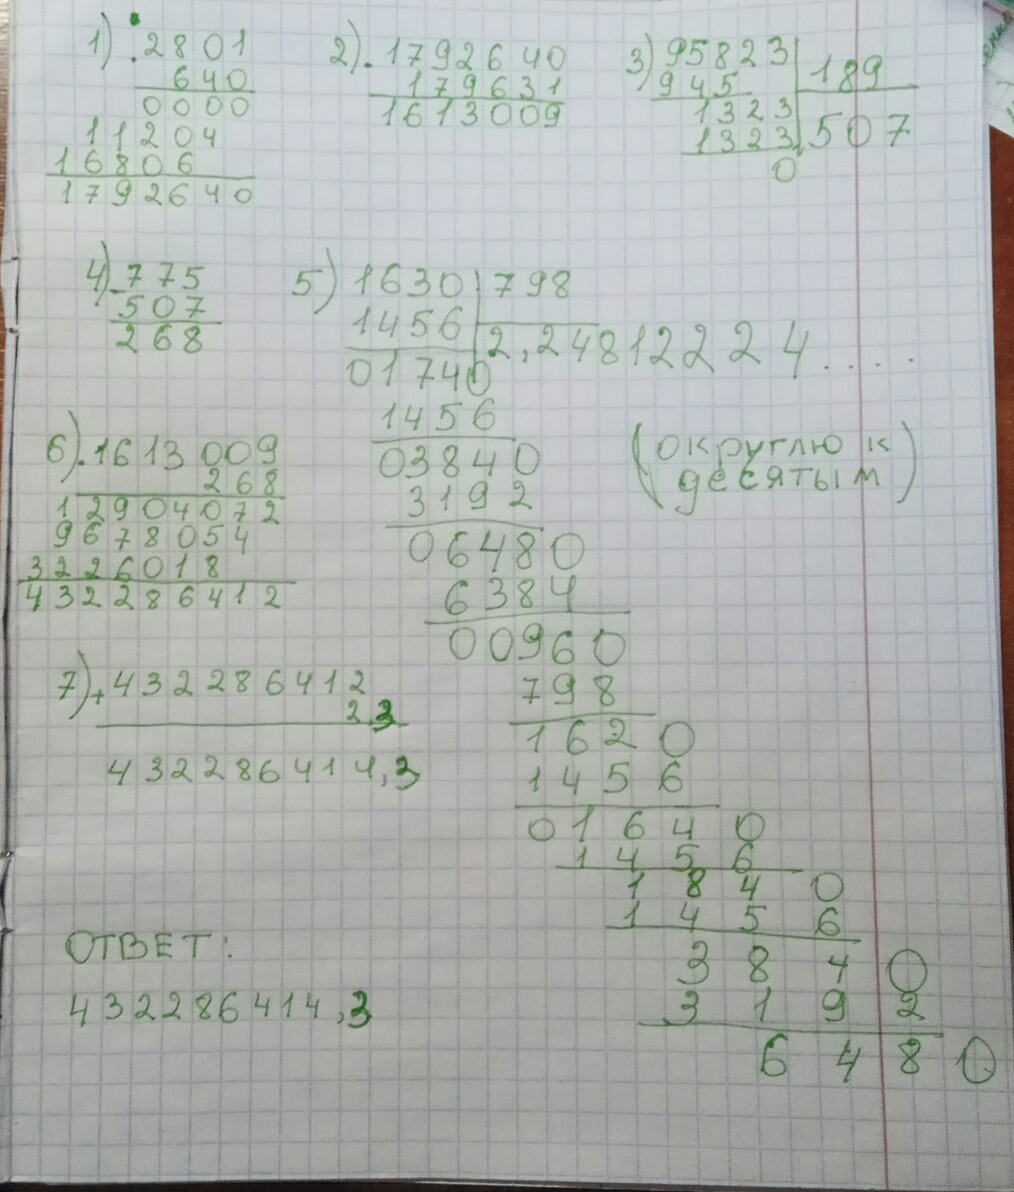 1) . 2801
640
0000
11204
16806
1792640
2) . 1792640
179631
1613009
3) 95823 189
945
1323 507
1323
0
4) - 775
507
268
5) 1630 798
1456 2,24812224.....
01740
1456
03840
3192
06480
6384
00960
798
1620
1456
01640
1456
1840
1456
3840
3192
6480
(округлю к
десятым)
6) . 1613009
268
12904072
9678054
3226018
432286412
7) + 432286412
23
432286414,3
ОТВЕТ:
432286414,3